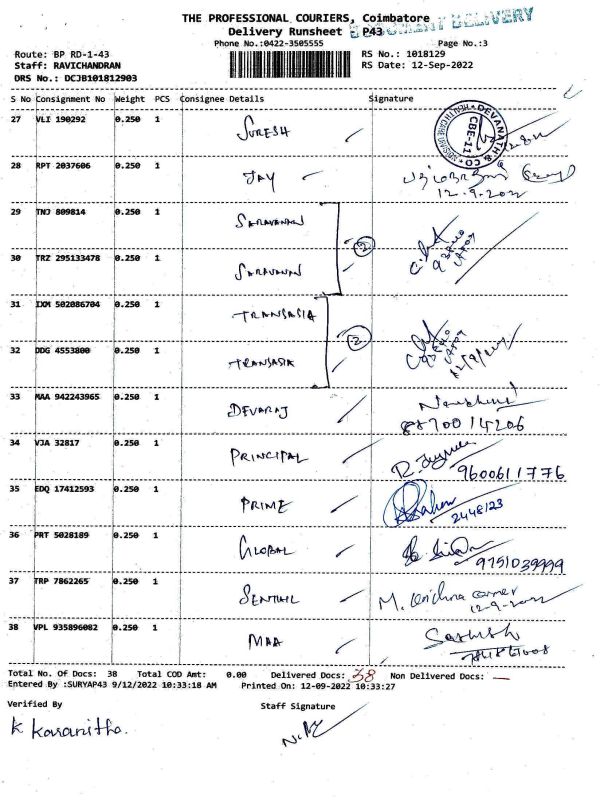 THE PROFESSIONAL COURIERS, Coimbatore
Delivery Runsheet P43
DOCUMENT DELIVERY
Phone No.:0422-3505555 Page No.:3
Route: BP RD-1-43 RS No.: 1018129
Staff: RAVICHANDRAN RS Date: 12-Sep-2022
DRS No.: DCJB101812903
S No Consignment No Weight PCS Consignee Details Signature
27 VLI 190292 0.250 1 SURESH
DEVANATH & CO CBE-11
28 RPT 2037606 0.250 1 JAY
12-9-2022
29 TNJ 809814 0.250 1 SARAVANAN
2
30 TRZ 295133478 0.250 1 SARAVANAN
31 IXM 502086704 0.250 1 TRANSASIA
2
32 DDG 4553800 0.250 1 TRANSASIA
12/9/2022
33 MAA 942243965 0.250 1 DEVARAJ
8870014206
34 VJA 32817 0.250 1 PRINCIPAL
9600611776
35 EDQ 17412593 0.250 1 PRIME
2448123
36 PRT 5028189 0.250 1 GLOBAL
9751039999
37 TRP 7862265 0.250 1 SENTHIL M. Krishna
12-9-2022
38 VPL 935896082 0.250 1 MAA Sathish
Total No. Of Docs: 38 Total COD Amt: 0.00 Delivered Docs: 38 Non Delivered Docs: —
Entered By :SURYAP43 9/12/2022 10:33:18 AM Printed On: 12-09-2022 10:33:27
Verified By Staff Signature
K Kavanitha.